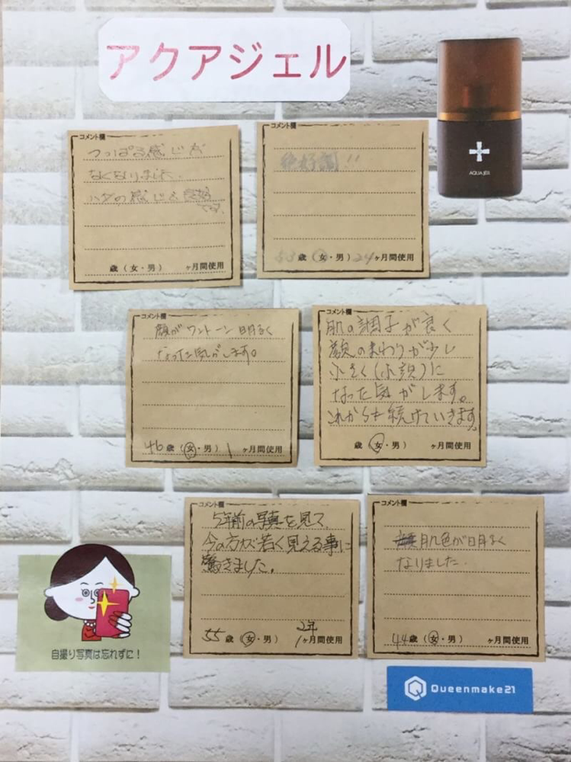 アクアジェル
AQUA JEL
コメント欄
つっぱる感じが
なくなりました。
ハダの感じは
です。
歳(女・男) ヶ月間使用
コメント欄
絶好調!!
53歳(女・男)24ヶ月間使用
コメント欄
顔がワントーン明るく
なった気がします。
46歳(女・男)1ヶ月間使用
コメント欄
肌の調子が良く
顔のまわりが少し
小さく(小顔)に
なった気がします。
これからも続けていきます。
歳(女・男) ヶ月間使用
コメント欄
5年前の写真を見て
今の方が若く見える事に
驚きました。
55歳(女・男)2年ヶ月間使用
コメント欄
肌色が明るく
なりました。
44歳(女・男) ヶ月間使用
自撮り写真は忘れずに!
Queenmake21